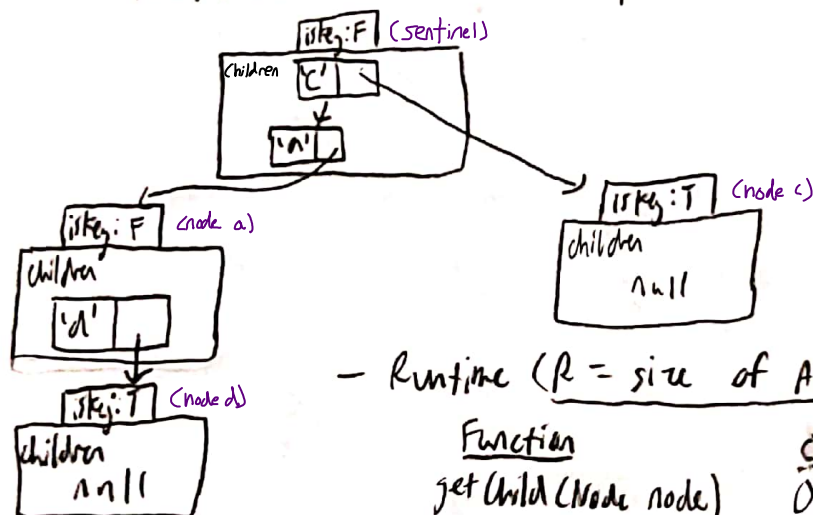 iskey:F (sentinel)
children 'c'
'a'
iskey:F (node a)
iskey:T (node c)
children
'd'
children
null
iskey:T (node d)
children
null
- Runtime (R = size of A
Function
getChild(Node node) O